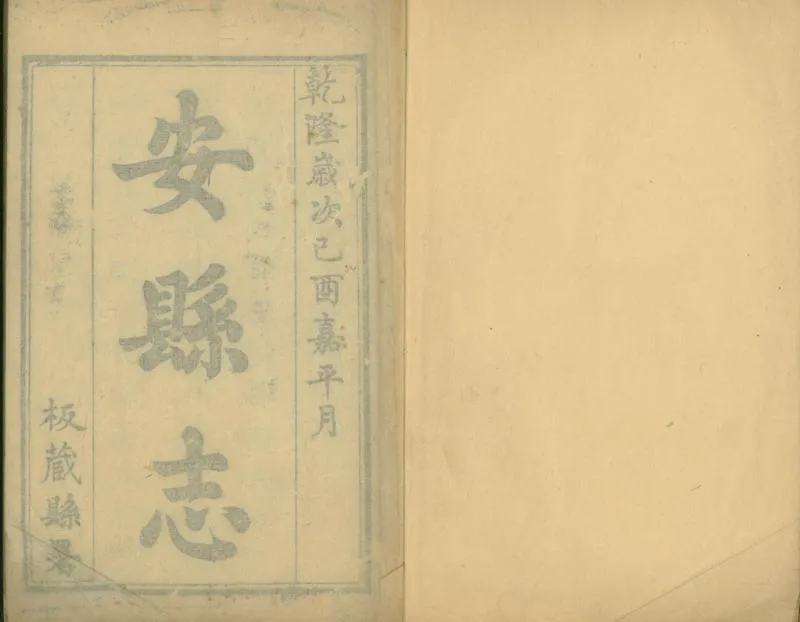 乾隆歲次己酉嘉平月
安縣志
板藏縣署